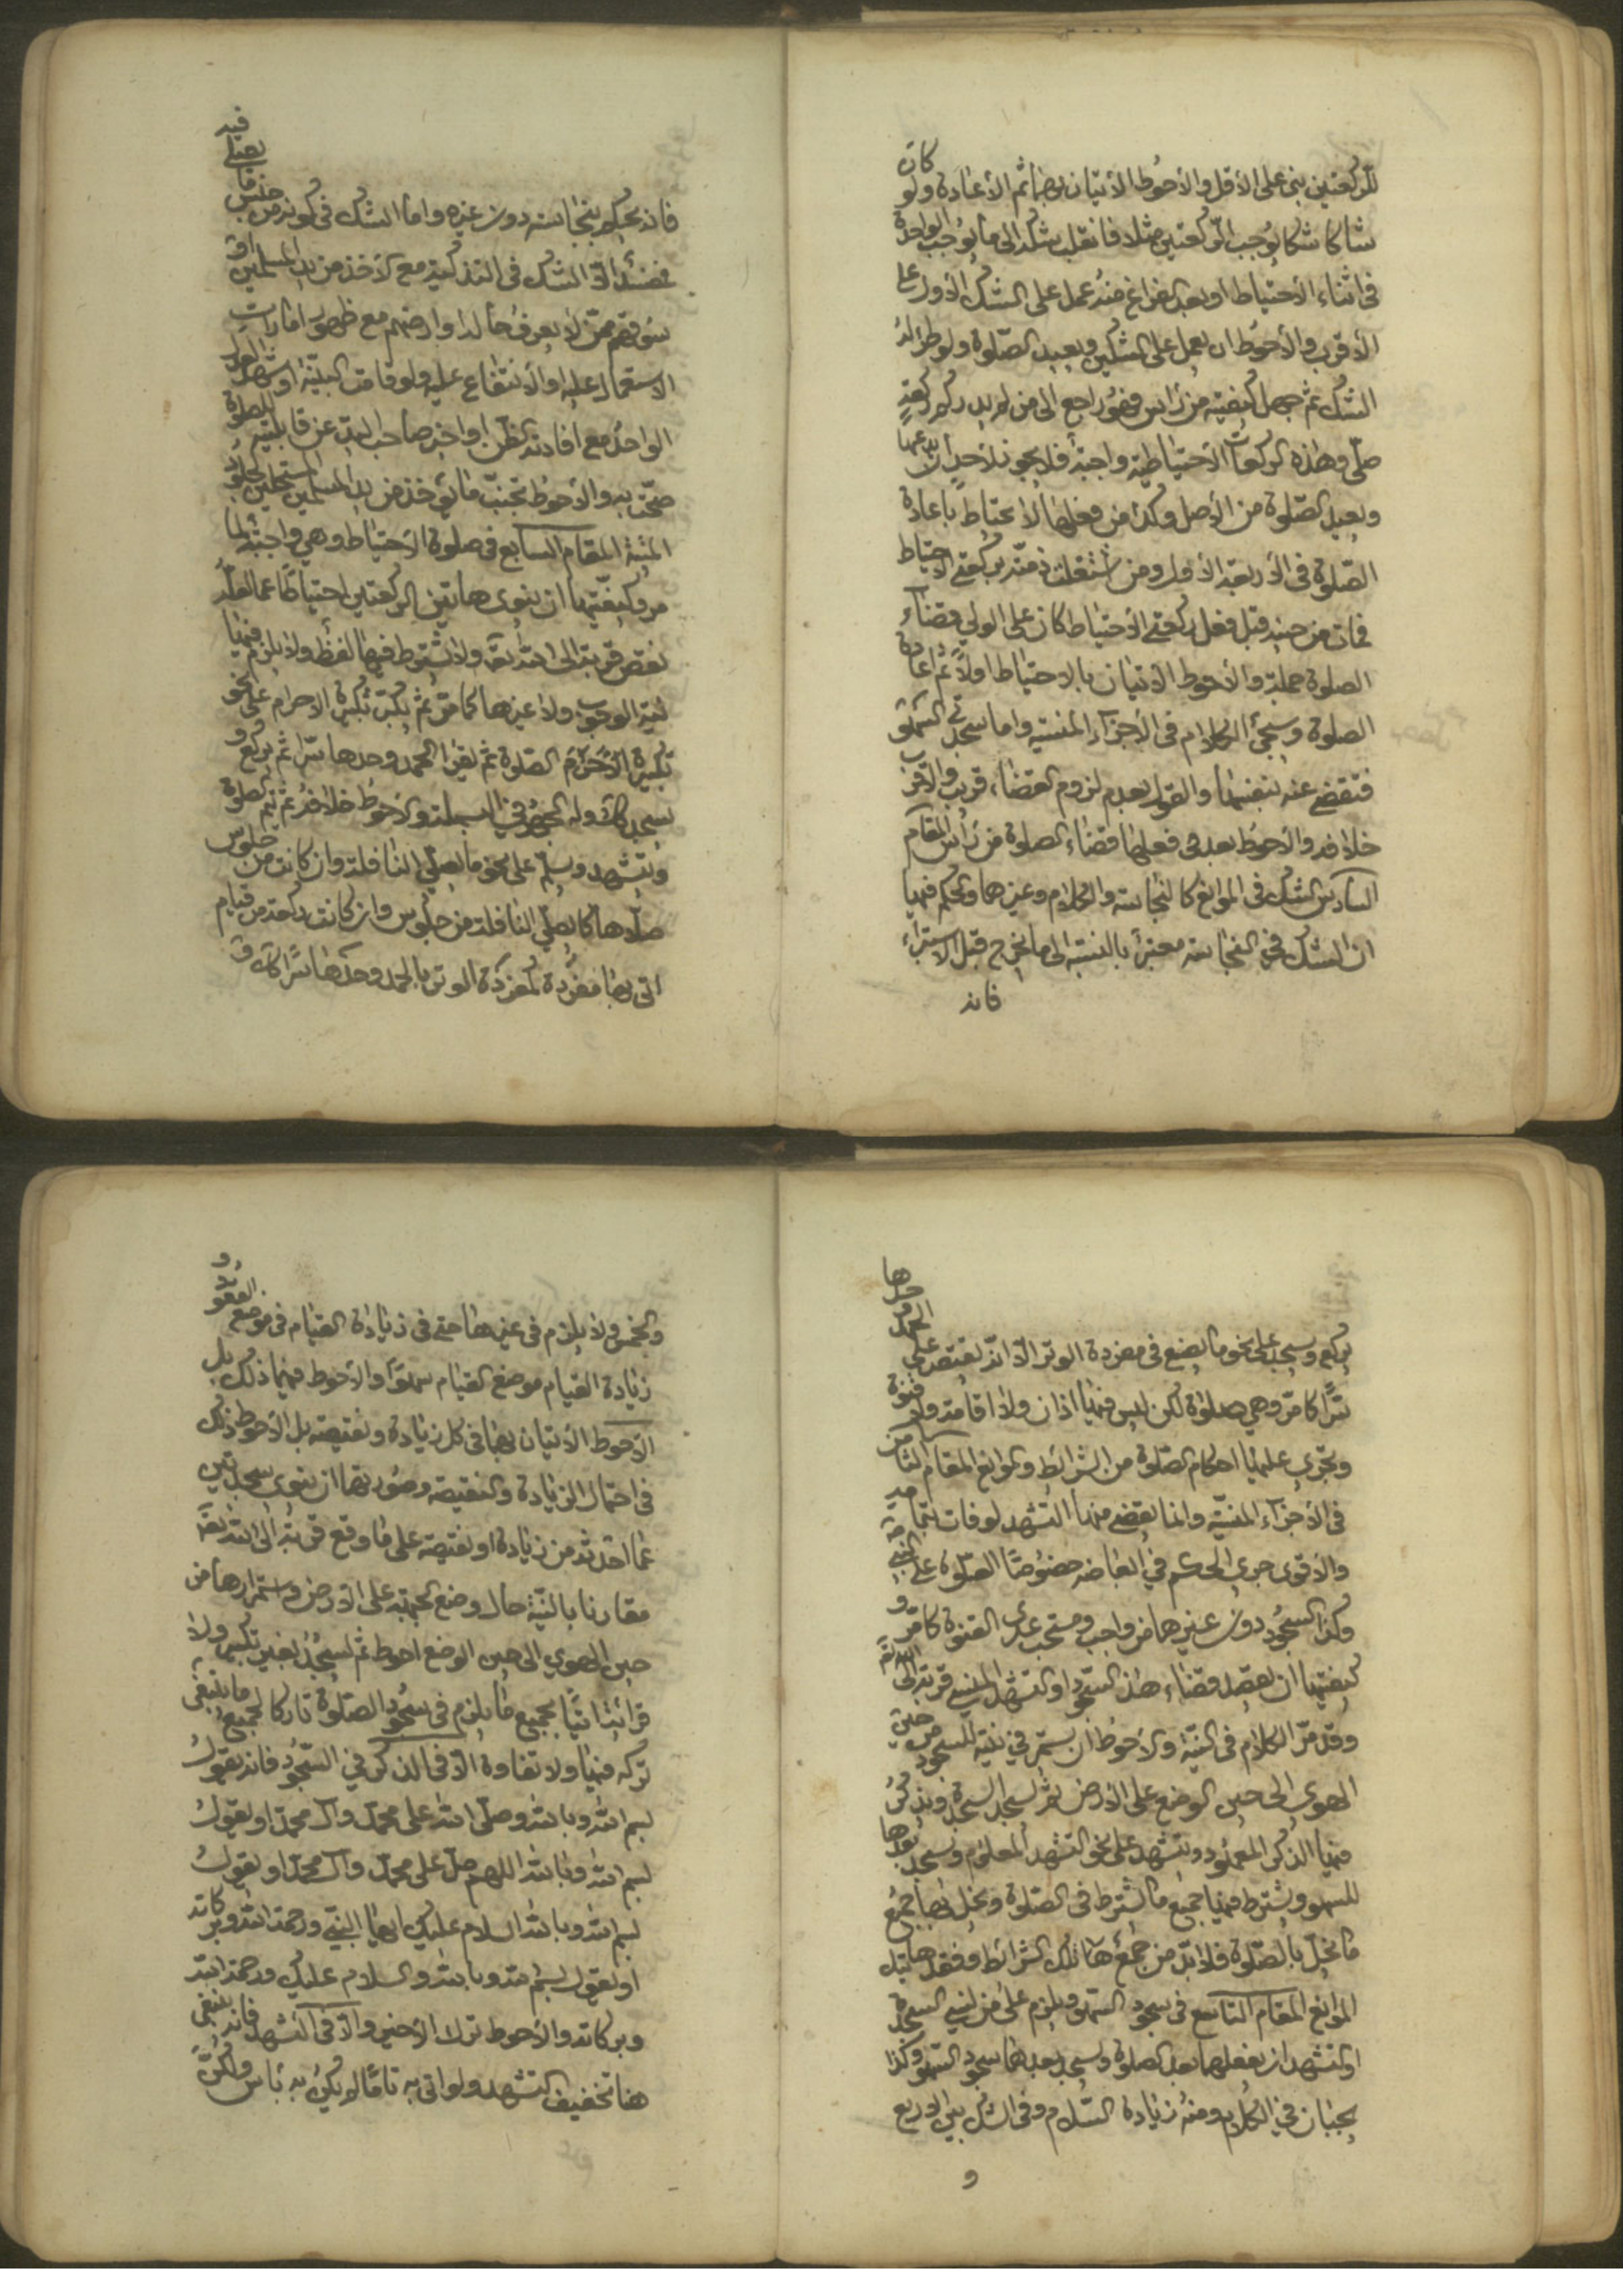 للركعتين بنى على الأقل والأحوط الأتيان بهما ثم الأعادة ولو كان
شاكا شكا يوجب الركعتين مثلا فانقلب شكه الى ما يوجب الواحدة
فى اثناء الأحتياط او بعد الفراغ منه عمل على الشك الأول على
الأقرب والأحوط ان يعمل على الشكين ويعيد الصلوة ولو طرء له
الشك ثم جهل كيفيته من رأس فهو راجع الى من لم يدر كم ركعة
صلى وهذه الركعات الأحتياطية واجبة فلا يجوز لأحد ان يدعها
ويعيد الصلوة من الأصل وكذا من فعلها لا يحتاط باعادة
الصلوة فى الأربعة الأول ومن اشتغلت ذمته بركعتى الاحتياط
فمات من حينه قبل فعل ركعتى الأحتياط كان على الولي قضاء
الصلوة جملة والأحوط الأتيان بالاحتياط اولا ثم اعادة
الصلوة وسيجئ الكلام فى الأجزاء المنسية واما سجدتى السهو
فتقضى عنه بنفسهما والقول بعدم لزوم القضاء قريب والأقرب
خلافه والأحوط بعد فعلها قضاء الصلوة من رأس المقام
السادس الشك فى الموانع كالنجاسة والكلام وغيرهما والحكم فيها
ان الشك فى النجاسة معتبر بالنسبة الى ما يخرج قبل الاستبراء
فانه
فانه يحكم بنجاسته دون غيره واما الشك فى كونه من جنس ما يصلى فيه
سوقهم ممن لا يعرف حاله او ارضهم مع ظهور امارات
الاستعمال عليه او الأنتفاع عليه ولو قامت البينة او شهد العدل
الواحد مع افادته الظن او اخبر صاحب اليد عن قابليته للصلوة
صحت به والأحوط تجنب ما يؤخذ من يد المسلمين المستحلين لجلود
الميتة المقام السابع فى صلوة الأحتياط وهي واجبة لما
مر وكيفيتها ان ينوى هاتين الركعتين احتياطا عما لعله
نقص قربة الى الله تعالى ولا يشترط فيها لفظ ولا يلزم فيها
نية الوجوب ولا غيرها كما مر ثم يكبر تكبيرة الاحرام على نحو
تكبيرة الأحرام الصلوة ثم يقرا الحمد وحدها سرا ثم يركع و
يسجد كذلك وله الجهر في البسملة والأحوط خلافه ثم يتم الصلوة
ويتشهد ويسلم على نحو ما يصلي النافلة وان كانت من جلوس
صلاها كما يصلي النافلة من جلوس وان كانت ركعة من قيام
اتى بها مفردة كمفردة الوتر بالحمد وحدها سرا كذلك ق
يركع ويسجد على نحو ما يصنع فى مفردة الوتر الا انه يقتصر على الحمد وحدها
سرا كما مر وهي صلوة لكن ليس فيها اذان ولا اقامة ولا قنوة
وتجري عليها احكام الصلوة من الشرائط والموانع المقام الثامن
فى الأجزاء المنسية وانما يقضى منها التشهد لو فات بتمامه
والأقوى جرى الحكم في ابعاضه خصوصا الصلوة على النبي
وكذا السجود دون غيرهما من واجب ومستحب عدى القنوة كما مر و
كيفيتها ان يقصد قضاء هذا السجود او التشهد المنسي قربة الى الله تعالى
وقد مر الكلام فى النية والأحوط ان يستمر في نية السجود من حين
الهوي الى حين الوضع على الأرض ثم يسجد السجدة ويذكر
فيها الذكر المعهود ويتشهد على نحو التشهد المعلوم ويسجد بعدها
للسهو ويشترط فيها جميع ما يشترط فى الصلوة ويخل بها جميع
ما يخل بالصلوة فلا بد من جمع هاتيك الشرائط وفقد هاتيك
الموانع المقام التاسع فى سجود السهو ويلزم على من نسي السجدة
او التشهد ان يفعلهما بعد الصلوة ويسجد بعدهما سجود السهو وكذا
يجبان في الكلام ومنه زيادة السلام وفى الشك بين الاربع
و
والخمس ولا يلزم فى غيرها حتى فى زيادة القيام فى موضع القعود و
زيادة القيام موضع القيام سهوا والأحوط فيها ذلك بل
الأحوط الأتيان بها فى كل زيادة ونقيصة بل الأحوط ذلك
فى احتمال الزيادة والنقيصة وصورتها ان ينوى سجدتين
عما احدثه من زيادة او نقيصة على ما وقع قربة الى الله تعالى
مقارنا بالنية حال وضع الجبهة على الأرض واستمرارها من
حين الهوي الى حين الوضع احوط ثم يسجد بغير تكبير ولا
قرائة اتيا بجميع ما يلزم فى سجود الصلوة تاركا لجميع ما ينبغي
تركه فيها ولا تفاوة الا فى الذكر في السجود فانه يقول
بسم الله وبالله وصلى الله على محمد وآل محمد او يقول
بسم الله وبالله اللهم صل على محمد وآل محمد او يقول
بسم الله وبالله السلام عليك ايها النبي ورحمة الله وبركاته
او يقول بسم الله وبالله والسلام عليك ورحمة الله
وبركاته والأحوط ترك الأخير والا فى التشهد فانه ينبغى
هنا تخفيف التشهد ولو اتى به تاما لم يكن به بأس ولكن